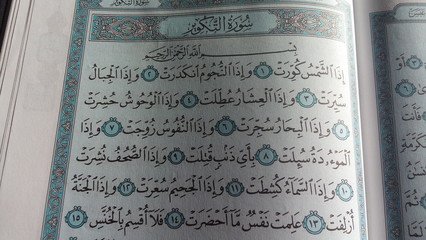 سُورَةُ التَّكْوِيرِ
سُورَةُ التَّكْوِيرِ
بِسْمِ اللَّهِ الرَّحْمَٰنِ الرَّحِيمِ
إِذَا ٱلشَّمْسُ كُوِّرَتْ ١ وَإِذَا ٱلنُّجُومُ ٱنكَدَرَتْ ٢ وَإِذَا ٱلْجِبَالُ
سُيِّرَتْ ٣ وَإِذَا ٱلْعِشَارُ عُطِّلَتْ ٤ وَإِذَا ٱلْوُحُوشُ حُشِرَتْ
٥ وَإِذَا ٱلْبِحَارُ سُجِّرَتْ ٦ وَإِذَا ٱلنُّفُوسُ زُوِّجَتْ ٧ وَإِذَا
ٱلْمَوْءُۥدَةُ سُئِلَتْ ٨ بِأَىِّ ذَنۢبٍ قُتِلَتْ ٩ وَإِذَا ٱلصُّحُفُ نُشِرَتْ
١٠ وَإِذَا ٱلسَّمَآءُ كُشِطَتْ ١١ وَإِذَا ٱلْجَحِيمُ سُعِّرَتْ ١٢ وَإِذَا ٱلْجَنَّةُ
أُزْلِفَتْ ١٣ عَلِمَتْ نَفْسٌ مَّآ أَحْضَرَتْ ١٤ فَلَآ أُقْسِمُ بِٱلْخُنَّسِ ١٥